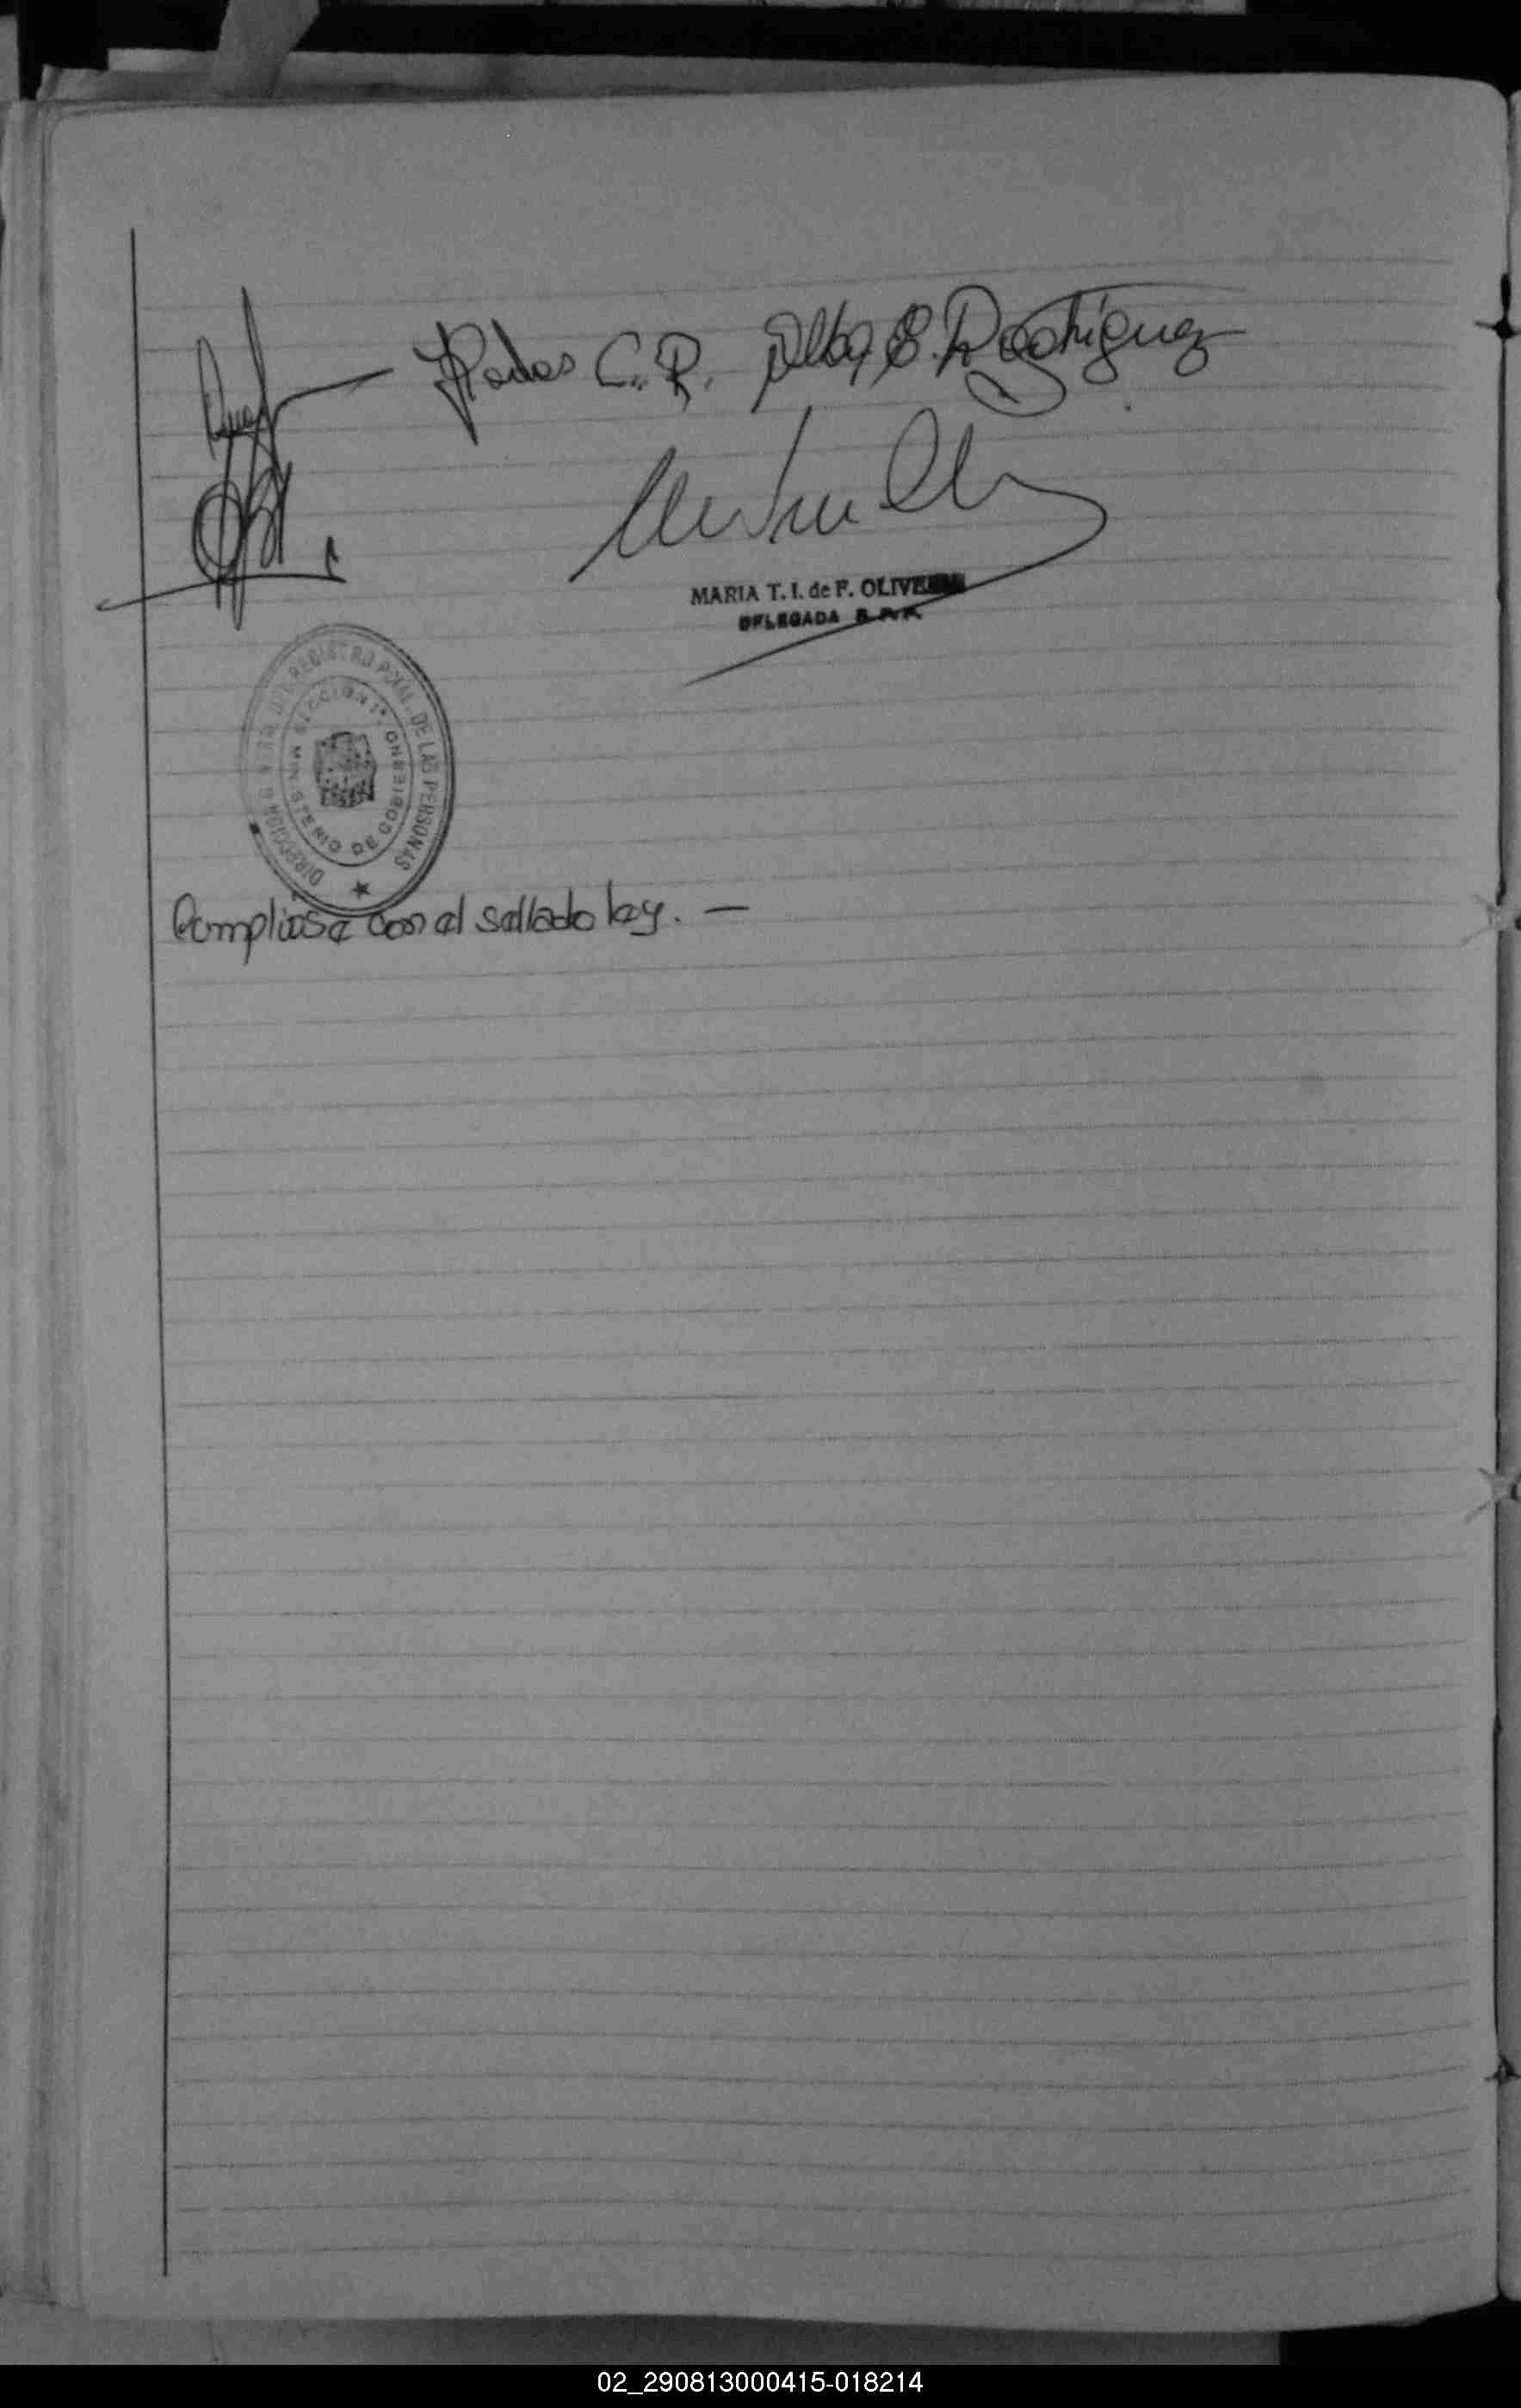 Rodas C. R. Alba E. Rodriguez
MARIA T. I. de F. OLIVEIRA
DELEGADA
DIRECCION GRAL. DEL REGISTRO PCIAL. DE LAS PERSONAS
SECCION 1ª
MINISTERIO DE GOBIERNO
Cumpliose con el sellado ley. —
02_290813000415-018214